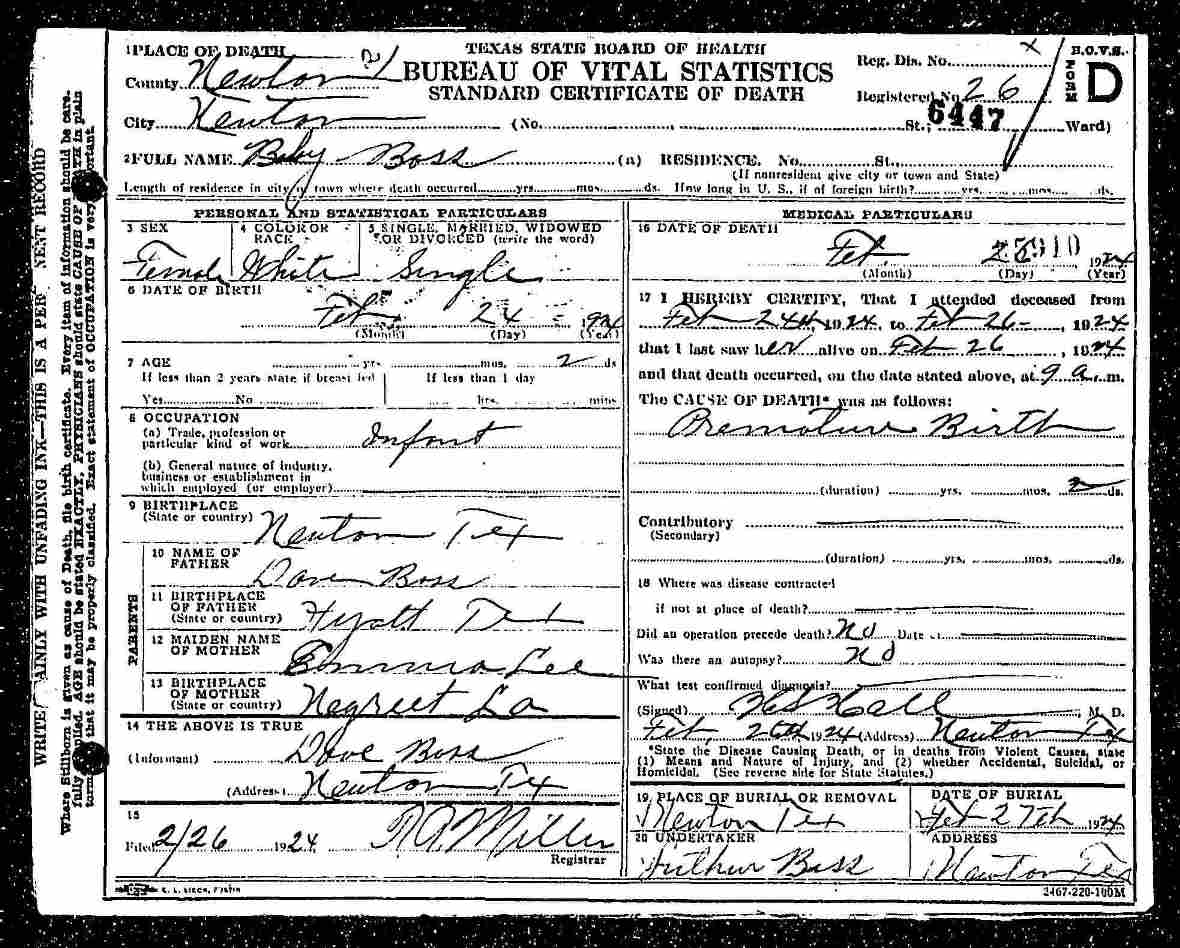 1 PLACE OF DEATH
TEXAS STATE BOARD OF HEALTH
BUREAU OF VITAL STATISTICS
STANDARD CERTIFICATE OF DEATH
Reg. Dis. No. X
B.O.V.S.
FORM D
County Newton
Registered No 26
6447
City Newton (No. , St.; Ward)
2 FULL NAME Baby Boss (a) RESIDENCE. No. St.,
(If nonresident give city or town and State)
Length of residence in city or town where death occurred yrs. mos. ds. How long in U. S., if of foreign birth? yrs. mos. ds.
PERSONAL AND STATISTICAL PARTICULARS
3 SEX
Female
4 COLOR OR RACE
White
5 SINGLE, MARRIED, WIDOWED
OR DIVORCED (write the word)
Single
6 DATE OF BIRTH
Feb. 24 - 1924
(Month) (Day) (Year)
7 AGE yrs. mos. 2 ds
If less than 2 years state if breast fed
If less than 1 day
Yes No hrs. mins
8 OCCUPATION
(a) Trade, profession or
particular kind of work Infant
(b) General nature of Industry,
business or establishment in
which employed (or employer)
9 BIRTHPLACE
(State or country) Newton Tex
PARENTS
10 NAME OF
FATHER Dave Boss
11 BIRTHPLACE
OF FATHER
(State or country) Hyatt Tex
12 MAIDEN NAME
OF MOTHER Emma Lee
13 BIRTHPLACE
OF MOTHER
(State or country) Negreet La
14 THE ABOVE IS TRUE
(Informant) Dave Boss
(Address) Newton Tex
15
Filed 2/26 1924 Miller
Registrar
MEDICAL PARTICULARS
16 DATE OF DEATH
Feb 1924
(Month) (Day) (Year)
17 I HEREBY CERTIFY, That I attended deceased from
Feb 24th, 1924, to Feb 26-, 1924
that I last saw her alive on Feb 26, 1924
and that death occurred, on the date stated above, at 9 a. m.
The CAUSE OF DEATH* was as follows:
Premature Birth
(duration) yrs. mos. 2 ds.
Contributory
(Secondary)
(duration) yrs. mos. ds.
18 Where was disease contracted
if not at place of death?
Did an operation precede death? No Date of
Was there an autopsy? No
What test confirmed diagnosis?
(Signed) Hall, M. D.
Feb, 26th 1924 (Address) Newton Tex
*State the Disease Causing Death, or in deaths from Violent Causes, state
(1) Means and Nature of Injury, and (2) whether Accidental, Suicidal, or
Homicidal. (See reverse side for State Statutes.)
19 PLACE OF BURIAL OR REMOVAL
Newton Tex
DATE OF BURIAL
Feb 27th 1924
20 UNDERTAKER
Arthur Boss
ADDRESS
Newton Tex
2467-220-100M